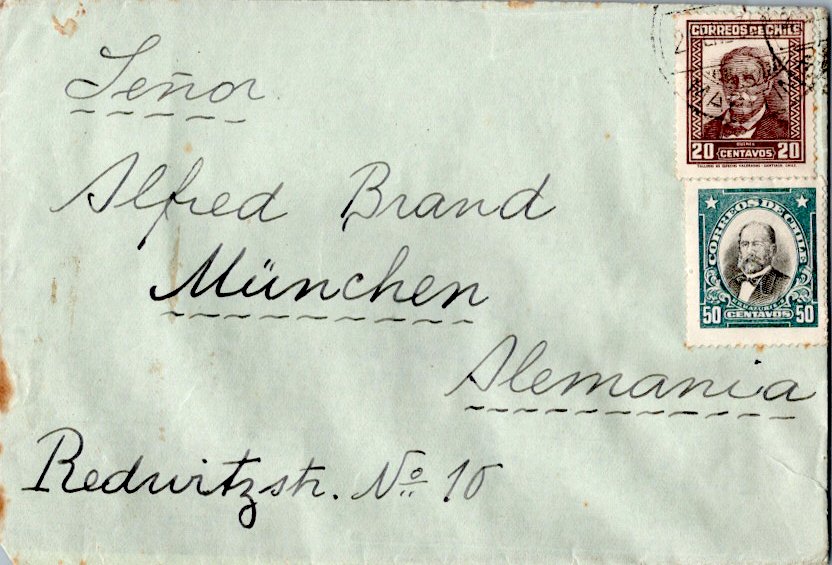 Señor
Alfred Brand
München
Alemania
Redwitzstr. No 10
CORREOS DE CHILE
20 CENTAVOS 20
CORREOS DE CHILE
50 CENTAVOS 50